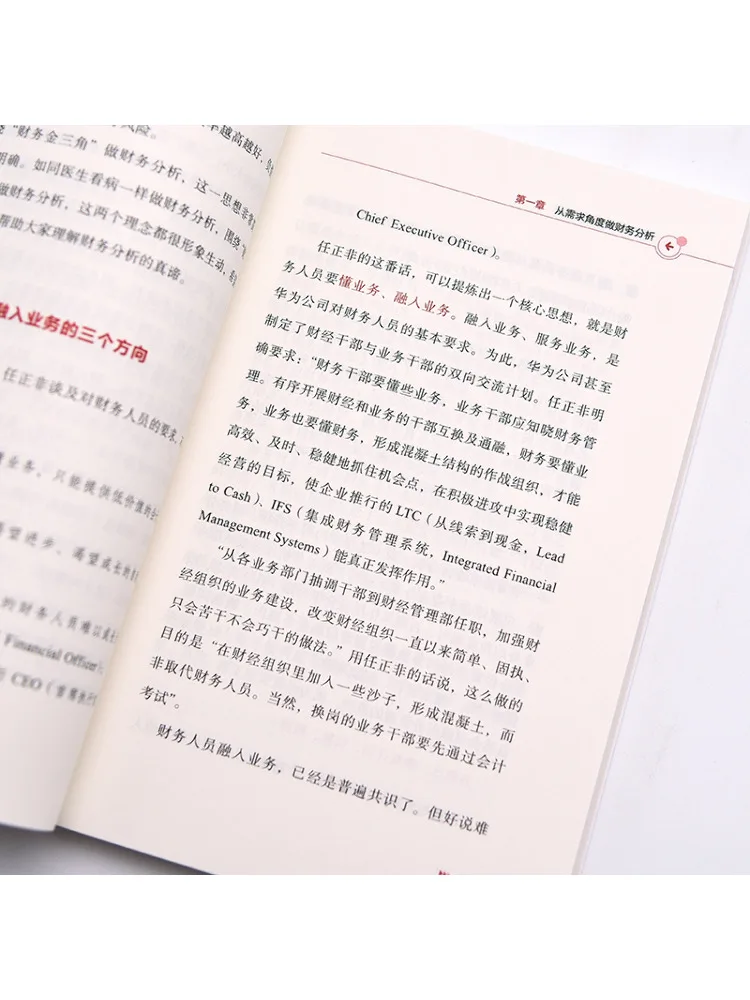 风险。
“财务金三角”做财务分析，这一思想非
明确。如同医生看病一样做财务分析，围绕
做财务分析，这两个理念都很形象生动，
帮助大家理解财务分析的真谛。
融入业务的三个方向
任正非谈及对财务人员的要求
业务，只能提供低价值的
望进步、渴望成长的
的财务人员难以成
Financial Officer）
CEO（首席执行
第一章 从需求角度做财务分析
Chief Executive Officer）。
任正非的这番话，可以提炼出一个核心思想，就是财
务人员要懂业务、融入业务。融入业务、服务业务，是
华为公司对财务人员的基本要求。为此，华为公司甚至
制定了财经干部与业务干部的双向交流计划。任正非明
确要求：“财务干部要懂些业务，业务干部应知晓财务管
理。有序开展财经和业务的干部互换及通融，财务要懂业
务，业务也要懂财务，形成混凝土结构的作战组织，才能
高效、及时、稳健地抓住机会点，在积极进攻中实现稳健
经营的目标，使企业推行的 LTC（从线索到现金，Lead
to Cash）、IFS（集成财务管理系统，Integrated Financial
Management Systems）能真正发挥作用。”
“从各业务部门抽调干部到财经管理部任职，加强财
经组织的业务建设，改变财经组织一直以来简单、固执、
只会苦干不会巧干的做法。”用任正非的话说，这么做的
目的是“在财经组织里加入一些沙子，形成混凝土，而
非取代财务人员。当然，换岗的业务干部要先通过会计
考试”。
财务人员融入业务，已经是普遍共识了。但好说难